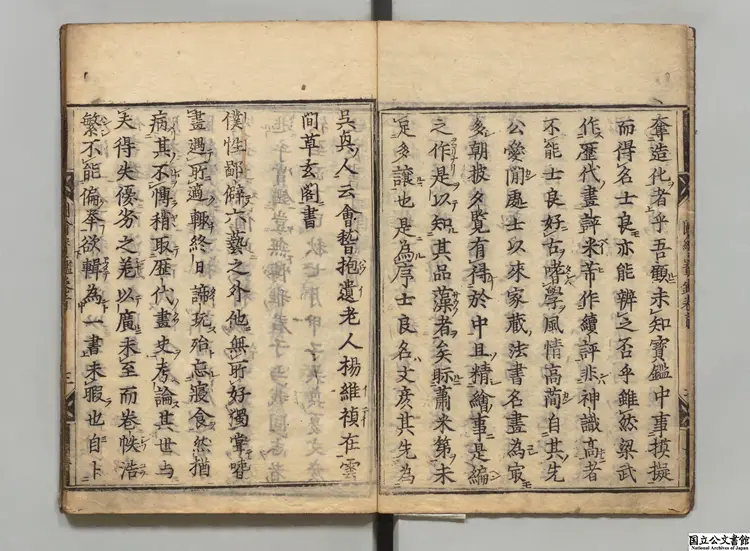 奪造化者乎吾觀未知寶鑑中事摸擬
而得名士良亦能辨之否乎雖然梁武
作歷代畫評米芾作續評非神識高者
不能士良好古嗜學風情高簡自其先
公愛閒處士以來家藏法書名畫為㝡
多朝披夕覧有得於中且精繪事是編
之作是以知其品藻者矣眎蕭米第未
足多讓也是為序士良名文彥其先為
吳興人云會稽抱遺老人楊維禎在雲
間草玄閣書
僕性鄙僻六藝之外他無所好獨嘗嗜
畫遇所適輒終日諦玩殆忘寢食然猶
病其不愽稍取歷代畫史考論其世与
夫得失優劣之差以廣未至而卷帙浩
繁不能徧舉欲輯為一書未暇也自卜
国立公文書館
National Archives of Japan